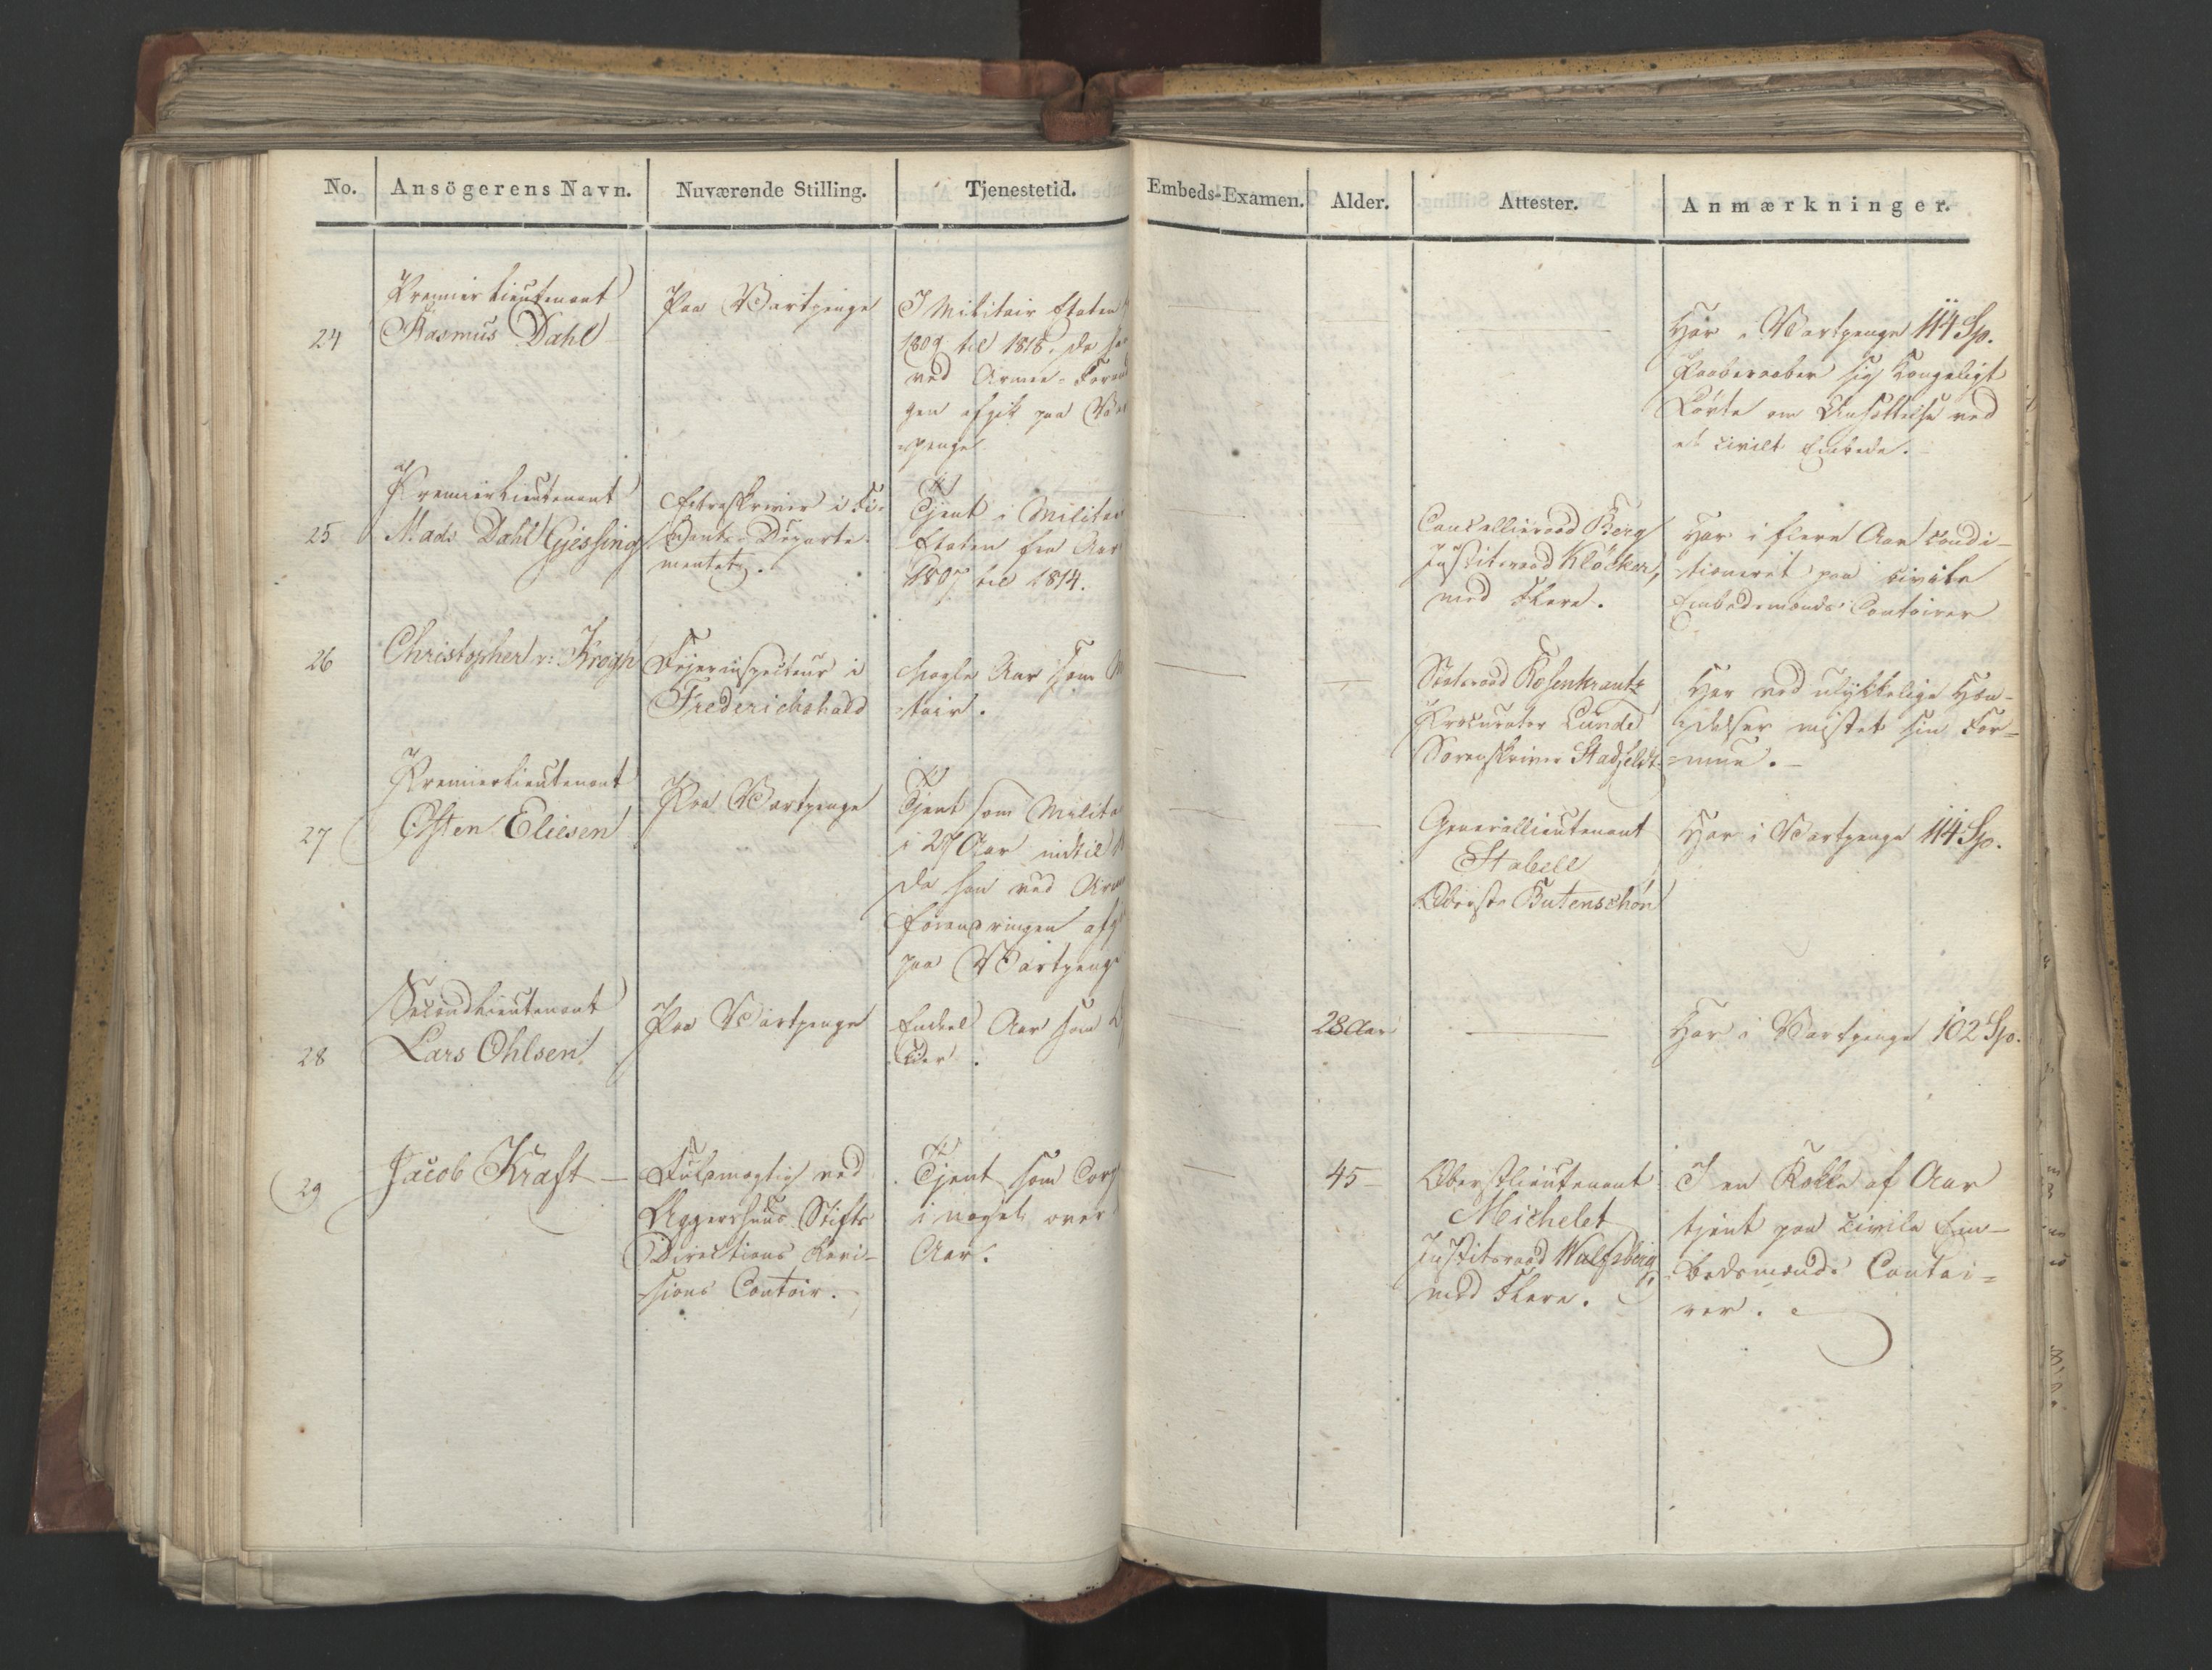 No. Ansögerens Navn. Nuværende Stilling. Tjenestetid. Embeds-Examen. Alder. Attester. Anmærkninger.
24
Premierlieutenant
Rasmus Dahl
Paa Vartpenge
I Militair Etaten
1809 til 1818, da
ved Armee-Foran
gen afgik paa Va
penge
Har i Vartpenge 114 Sp.
Paaberaaber sig Kongeligt
Lövte om Ansættelse ved
et civilt Embede.
25
Premierlieutenant
Mads Dahl Gjessing
Extraskriver i Fi-
nants-Departe-
mentet.
Tjent i Militai
Etaten fra Aar
1807 til 1814.
Cancellieraad Berg
Justitsraad Klöcker,
med Flere.
Har i flere Aar condi-
tioneret paa civile
Embedsmænds Contoirer
26
Christopher v: Krogh
Veierinspecteur i
Frederichshald
Nogle Aar som
tair.
Statsraad Rosenkrantz
Procurator Lunde
Sorenskriver Stadfeldt
Har ved ulykkelige Hæn-
delser mistet sin For-
mue.
27
Premierlieutenant
Osten Eliesen
Paa Vartpenge
Tjent som Milita
i 27 Aar indtil
da han ved Arm
forandringen afg
paa Vartpenge
Generallieutenant
Stabell
Oberst Butenschön
Har i Vartpenge 114 Sp.
28
Secondlieutenant
Lars Ohlsen
Paa Vartpenge
Endeel Aar som
28 Aar
Har i Vartpenge 102 Sp.
29
Jacob Kraft
Fuldmægtig ved
Aggershuus Stifts
Directions Revi-
sions Contoir.
Tjent som Corp
i noget over
Aar.
45
Oberstlieutenant
Michelet
Justitsraad Wulfsberg
med Flere.
I en Række af Aar
tjent paa civile Em-
bedsmænds Contoi-
rer.